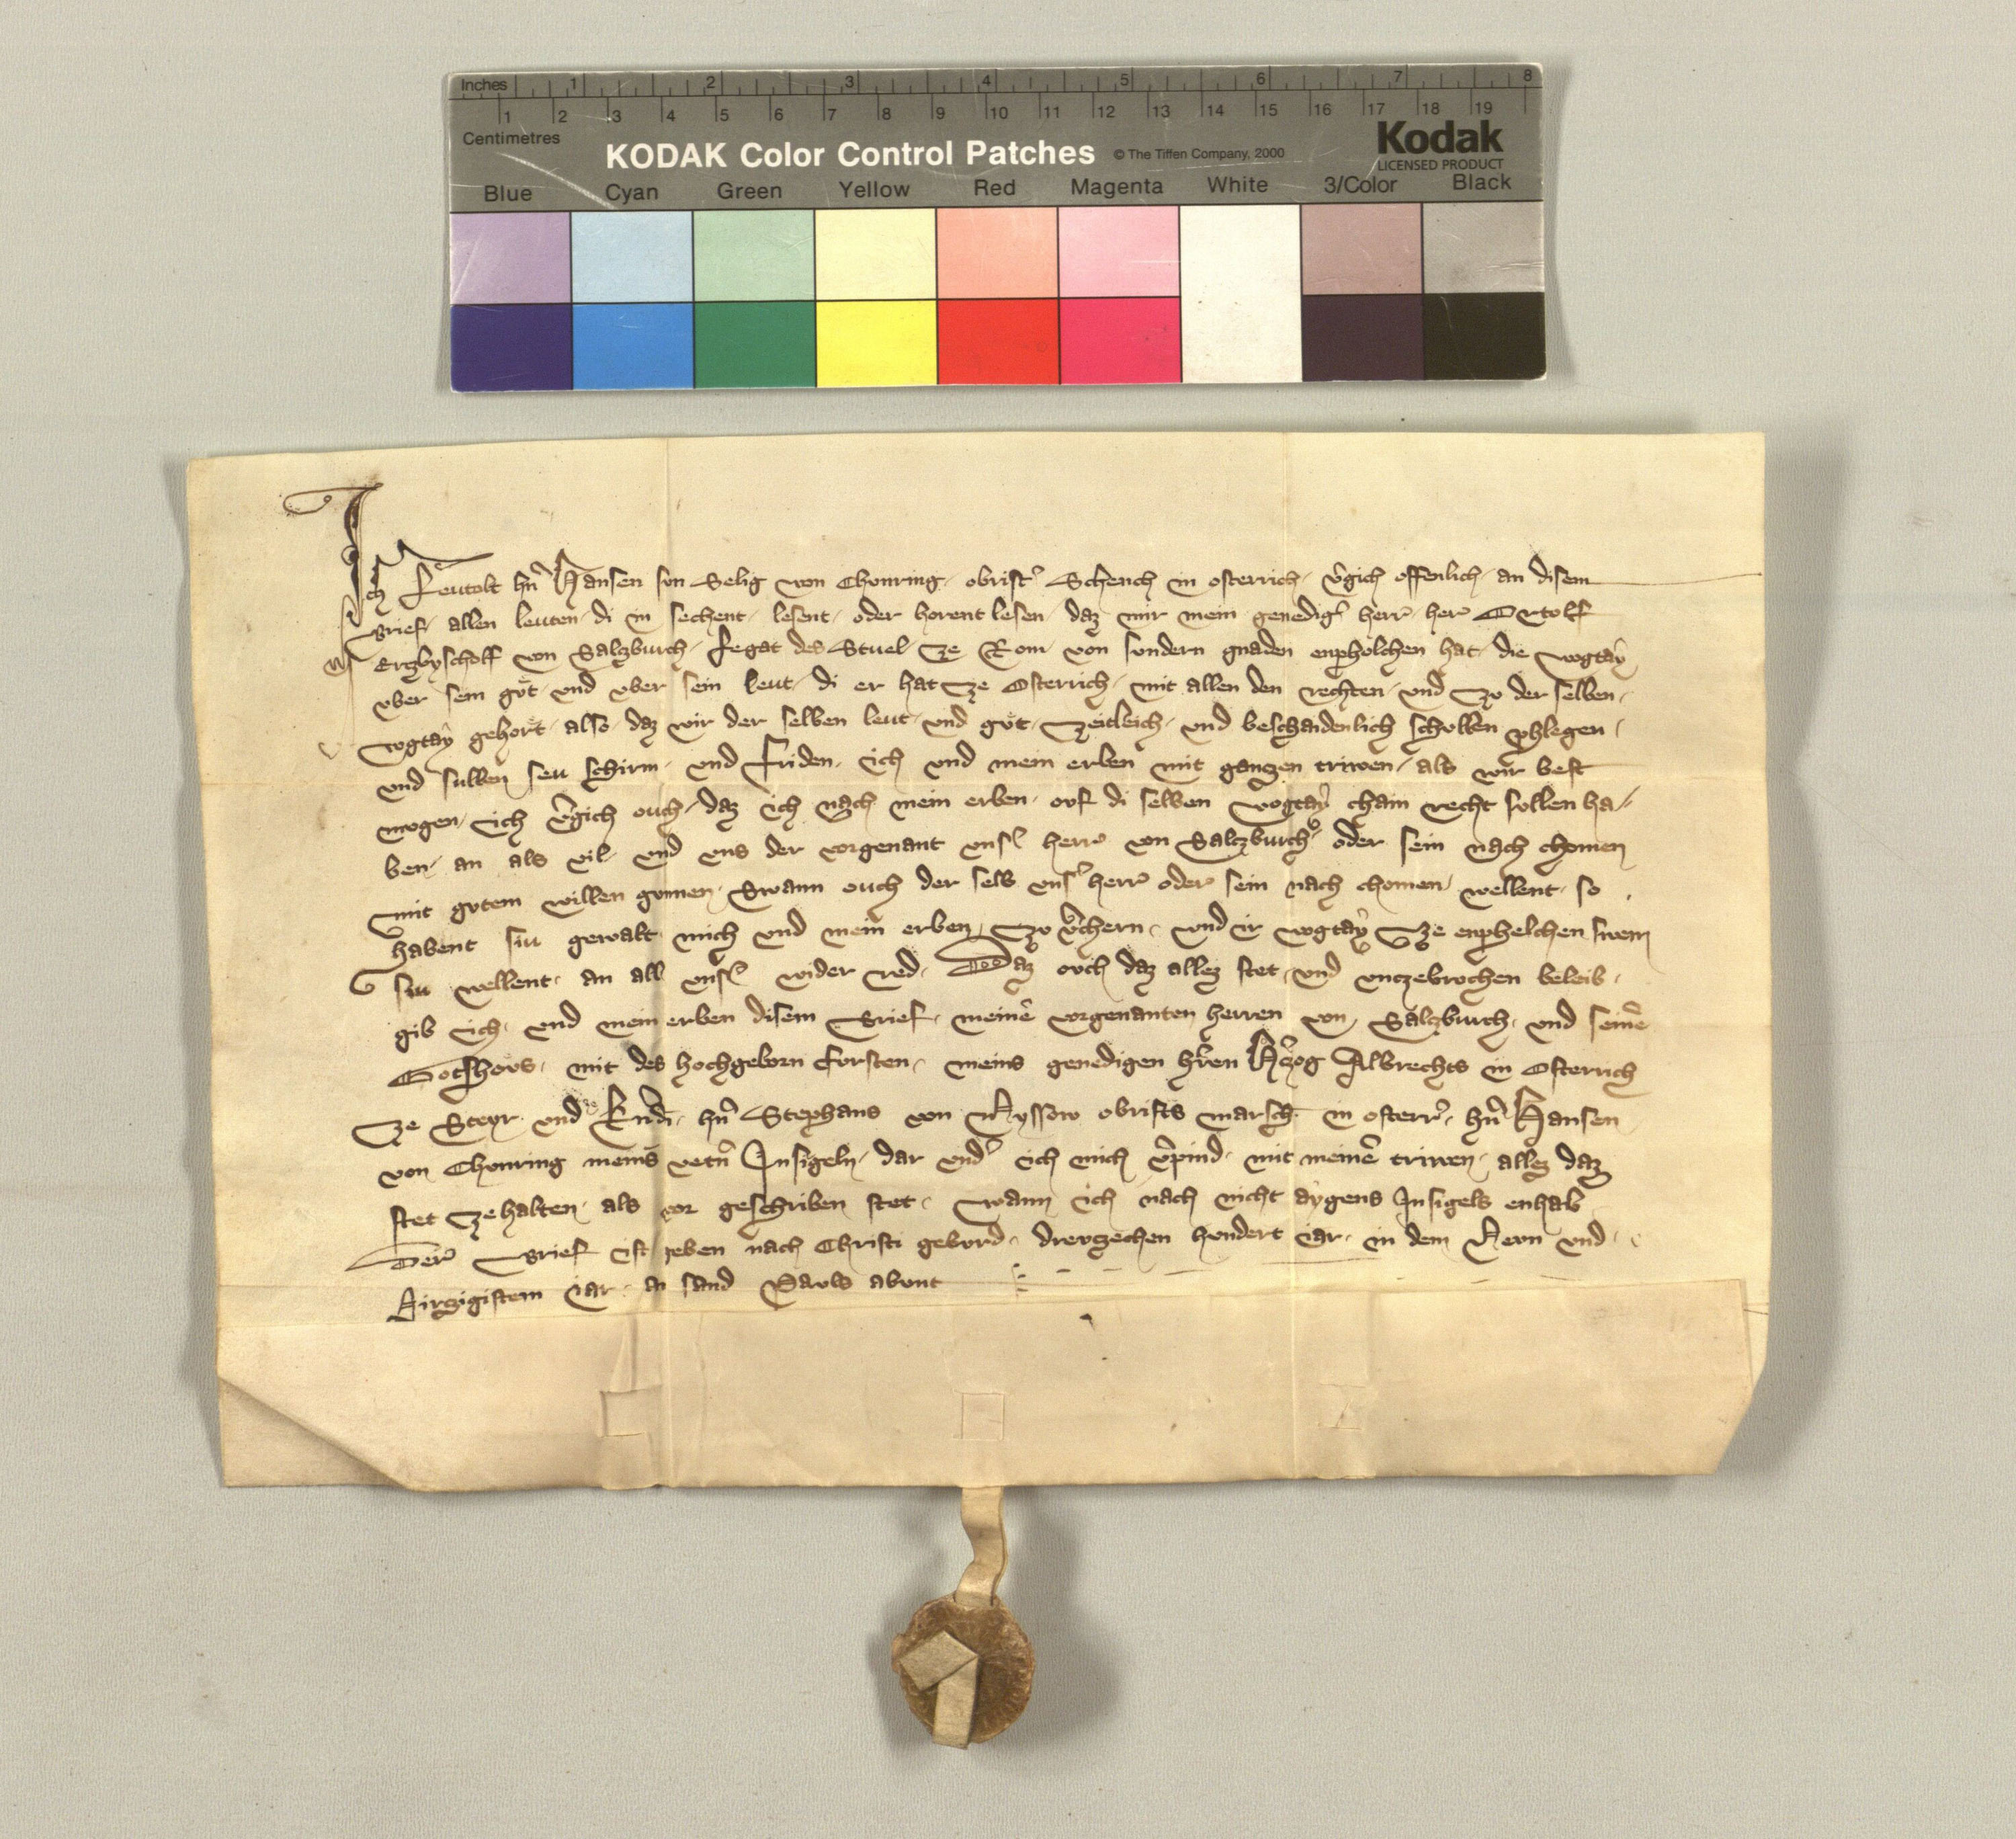 Inches 1 2 3 4 5 6 7 8
1 2 3 4 5 6 7 8 9 10 11 12 13 14 15 16 17 18 19
Centimetres
KODAK Color Control Patches © The Tiffen Company, 2000 Kodak
LICENSED PRODUCT
Blue Cyan Green Yellow Red Magenta White 3/Color Black
Ich Leutolt hn̄ Hansen sun Selig von Chonring obrist' Schench in osterrich v'gich offenlich an disem
Brief allen leuten di in sechent lesent oder horent lesen daz mir mein genedig' herr her Ortolf
Erzbyscholf von Salzburch Legat des Stuel ze Rom von sundern gnaden enpholchen hat die vogtaÿ
vber sein gůt vnd vber sein leut di er hat ze Osterrich mit allen den rechten vnd zv der selben
vogtaÿ gehort also daz wir der selben leut vnd gůt zeitleich vnd beschaidenlich schullen phlegen
vnd sullen seu schirm vnd friden ich vnd mein erben mit ganzen triwen als wir best
mogen ich v'gich ouch daz ich nach mein erben ovf di selben vogtaÿ chain recht sollen ha//
ben an als vil vnd vns der vorgenant vns' herr von Salczburch oder sein nach chomen
mit gutem willen gunnen Swann ouch der selb vns' herr oder sein nach chomen wellent so
habent siu gewalt mich vnd mein erben zv v'chern vnd ir vogtaÿ ze enphelchen swem
siu wellent an all vns' wider red Daz ovch daz allez stet vnd vnczebrochen beleib
gib ich vnd mein erben disem Brief meinē vorgenanten herren von Salczburch vnd seinē
Gotshovs mit des hochgeborn fursten meins genedigen h'ren H'czog Albrechts in Osterrich
ze Steyr vnd Kn̄di hn̄ Stephans von Myssow obrists marsch in osterr' hn̄ Hansen
von Chonring meins vetn̄ Insigeln dar vnd' ich mich v'pind mit meinē triwen allez daz
stet ze halten als vor geschriben stet wann ich nach nicht aÿgens Insigels enhab
Der Brief ist geben nach Christi geburd drevzechen hundert iar in dem Nevn vnd
virzigistem iar an sand Pauls abent